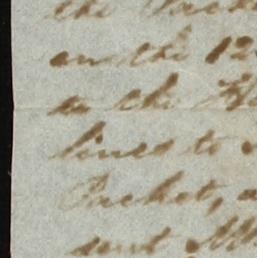 the Pack
and the 12
to the
lines to
Packet, a
sent